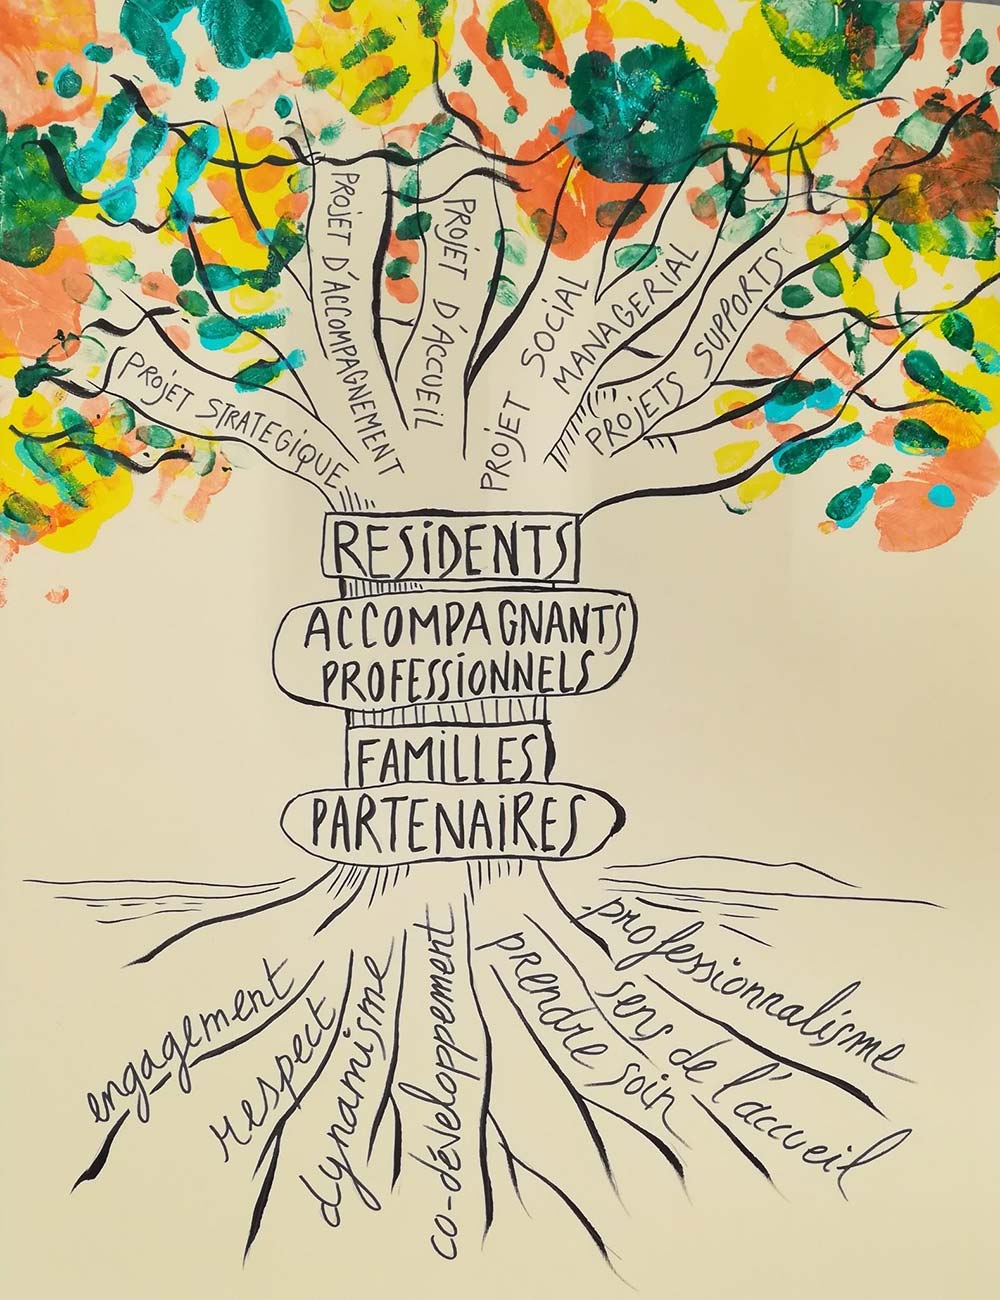 PROJET STRATEGIQUE
PROJET D'ACCOMPAGNEMENT
PROJET D'ACCUEIL
PROJET SOCIAL
MANAGERIAL
PROJETS SUPPORTS
RESiDENTS
ACCOMPAGNANTS
PROFESSiONNELS
FAMiLLES
PARTENAiRES
engagement
respect
dynamisme
co-développement
prendre soin
sens de l'accueil
professionnalisme